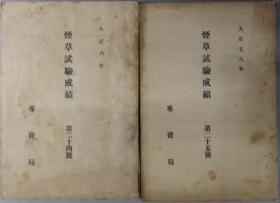 大正六年
煙草試驗成績
第二十四號
專賣局
大正七八年
煙草試驗成績
第二十五號
專賣局